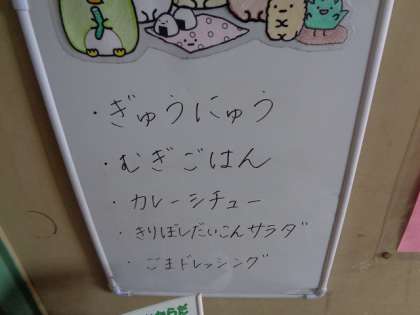 ・ぎゅうにゅう
・むぎごはん
・カレーシチュー
・きりぼしだいこんサラダ
・ごまドレッシング